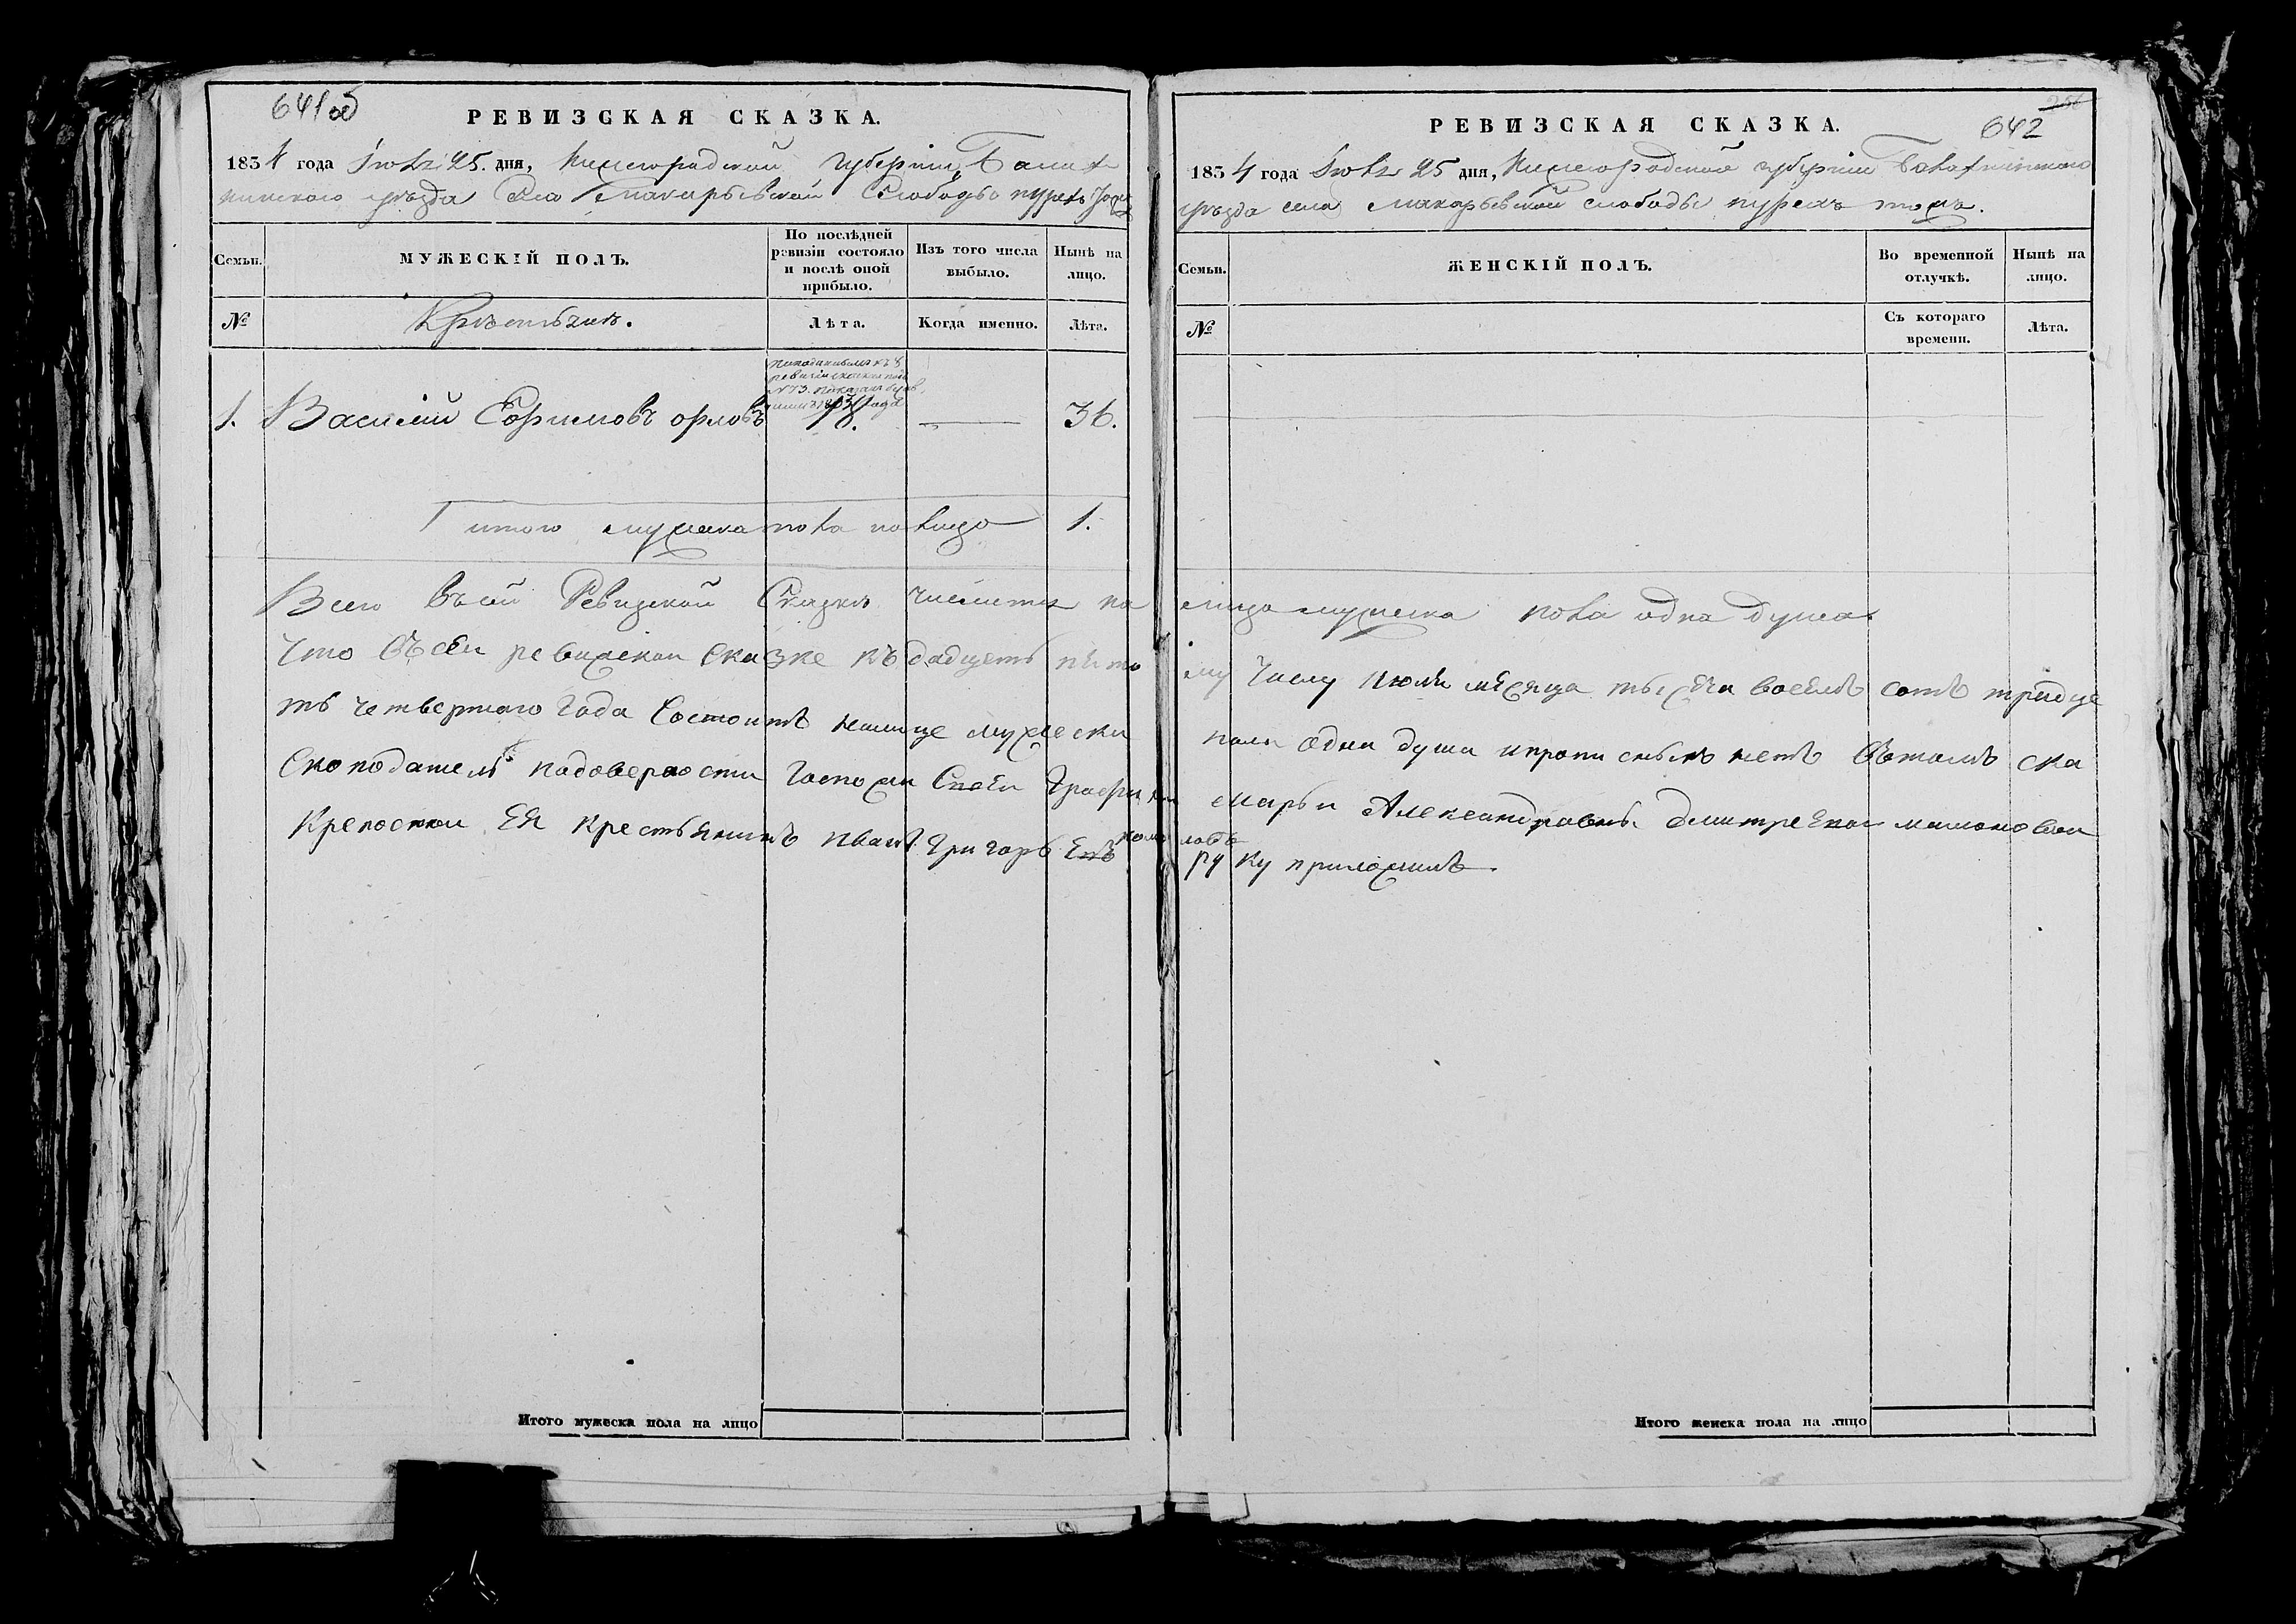 641 об
РЕВИЗСКАЯ СКАЗКА.
1834 года Іюля 25. дня, Нижегородской Губерніи Балах
нинского уѣзда Села Макарьевской Слободы пурехъ тожъ
Семьи.
МУЖЕСКІЙ ПОЛЪ.
По послѣдней ревизіи состояло и послѣ оной прибыло.
Изъ того числа выбыло.
Нынѣ на лицо.
№
Крѣстьянъ.
Лѣта.
Когда именно.
Лѣта.
ревизіи
1. Василій Ефимовъ орловъ 18. — 36.
Итого мужека пола налицо 1.
Всего въ сей Ревизской Сказкѣ числитъ на лицо мужеска пола одна душа
Что въсеи ревижскои сказке къ дадцеть пято му числу июля месяца тысеча восемъ сотъ тридце
ть четвертаго года Состоитъ налице мужеска пола одна душа ипрописныхъ нетъ Вътомъ ска
Скоподатель подоверности Госпожи Своеи Графини Марьи Александравны Дмитревои мамоновои
Крепостнои Ея крестьянинъ иванъ Григорьевъ
руку приложилъ.
Итого мужеска пола на лицо
642
РЕВИЗСКАЯ СКАЗКА.
1834 года Іюля 25 дня, Нижегородской губерніи Балахнинского
уѣзда села Макарьевской слободы пурехъ тожъ.
Семьи.
ЖЕНСКІЙ ПОЛЪ.
Во временной отлучкѣ.
Нынѣ на лицо.
№
Съ котораго времени.
Лѣта.
Итого женска пола на лицо